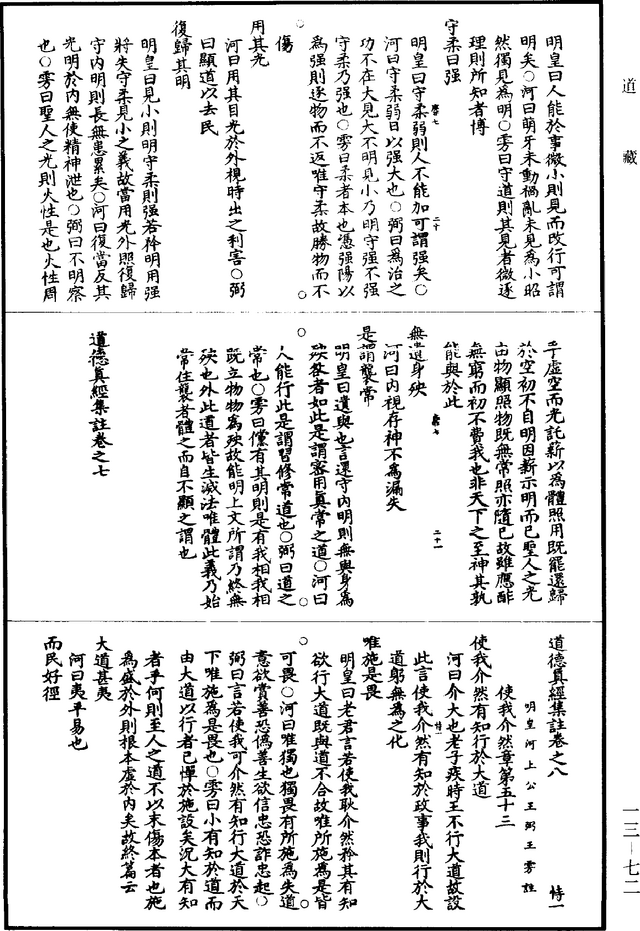 道藏
明皇曰人能於事微小則見而改行可謂
明矣○河曰萌牙未動禍亂未見為小昭
然獨見為明○雱曰守道則其見者微逐
理則所知者博
守柔曰強
明皇曰守柔弱則人不能加可謂強矣○
河曰守柔弱日以強大也○弼曰為治之
功不在大見大不明見小乃明守强不强
守柔乃强也○雱曰柔者本也憑强陽以
為强則逐物而不返唯守柔故勝物而不
傷
用其光
河曰用其目光於外視時世之利害○弼
曰顯道以去民
復歸其明
明皇曰見小則明守柔則强若矜明用强
將失守柔見小之義故當用光外照復歸
守內明則長無患累矣○河曰復當反其
光明於內無使精神泄也○弼曰不明察
也○雱曰聖人之光則火性是也火性周
乎虛空而光託薪以為體照用既罷還歸
於空初不自明因薪示明而已聖人之光
由物顯照物既無常照亦隨已故雖應酢
無窮而初不費我也非天下之至神其孰
能與於此
無遺身殃
河曰內視存神不為漏失
是謂襲常
明皇曰遺與也言還守內明則無與身為
殃咎者如此是謂密用真常之道○河曰
人能行此是謂習修常道也○弼曰道之
常也○雱曰儻有其明則是有我相我相
既立物物為殃故能明上文所謂乃終無
殃也外此道者皆生滅法唯體此義乃始
常住襲者體之而自不顯之謂也
道德真經集註卷之七
道德真經集註卷之八 恃一
明皇河上公王弼王雱註
使我介然章第五十三
使我介然有知行於大道
河曰介大也老子疾時王不行大道故設
此言使我介然有知於政事我則行於大
道躬無為之化
唯施是畏
明皇曰老君言若使我耿介然矜其有知
欲行大道既與道不合故唯所施為是皆
可畏○河曰唯獨也獨畏有所施為失道
意欲賞善恐偽善生欲信忠恐詐忠起○
弼曰言若使我可介然有知行大道於天
下唯施為是畏也○雱曰小有知於道而
由大道以行者已憚於施設矣況大有知
者乎何則至人之道不以末傷本者也施
為盛於外則根本虛於內矣故終篇云
大道甚夷
河曰夷平易也
而民好徑
一三—七二